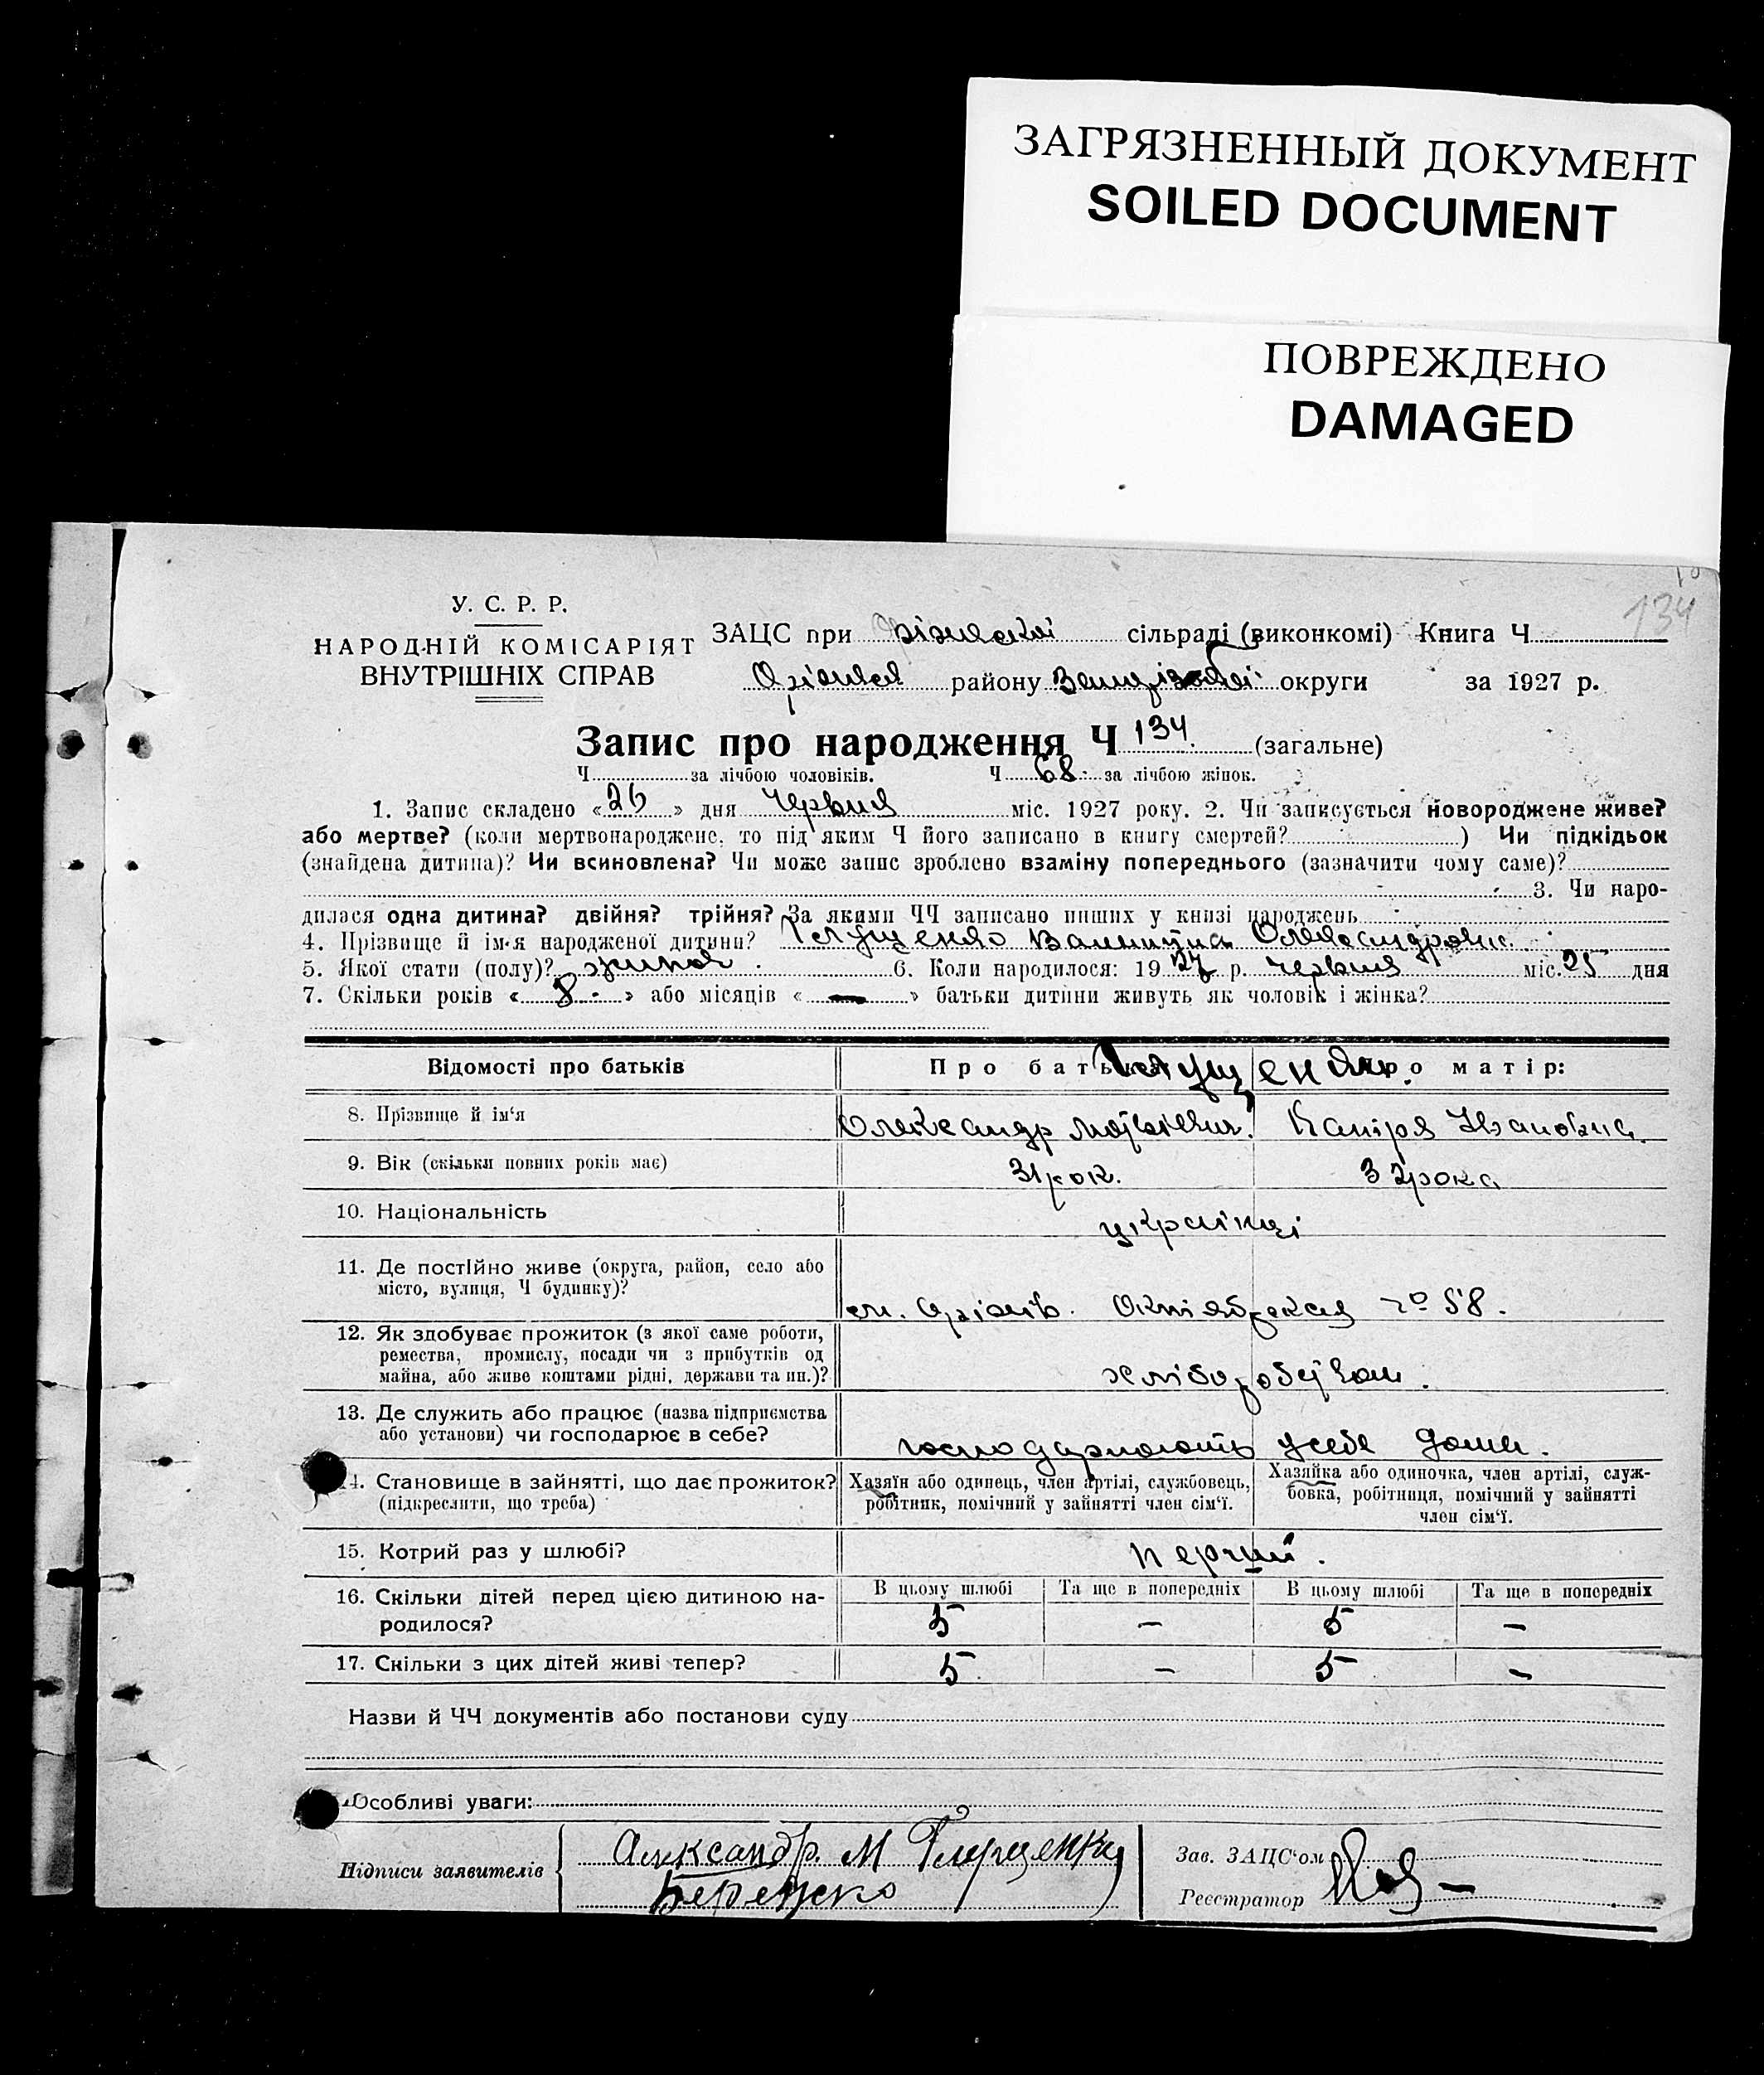 ЗАГРЯЗНЕННЫЙ ДОКУМЕНТ
SOILED DOCUMENT
ПОВРЕЖДЕНО
DAMAGED
134
У. С. Р. Р.
НАРОДНІЙ КОМІСАРІЯТ
ВНУТРІШНІХ СПРАВ
ЗАЦС при сільраді (виконкомі) Книга Ч
району округи за 1927 р.
Запис про народження Ч 134. (загальне)
Ч за лічбою чоловіків. Ч 68. за лічбою жінок.
1. Запис складено «26» дня червня міс. 1927 року. 2. Чи записується новороджене живе?
або мертве? (коли мертвонароджене, то під яким Ч його записано в книгу смертей? ) Чи підкідьок
(знайдена дитина)? Чи всиновлена? Чи може запис зроблено взаміну попереднього (зазначити чому саме)?
3. Чи наро-
дилася одна дитина? двійня? трійня? За якими ЧЧ записано инших у книзі народжень
4. Прізвище й ім'я народженої дитини? Олександровна.
5. Якої стати (полу)? жиноч. 6. Коли народилося: 1927 р. червня міс. 25 дня
7. Скільки років «8.» або місяців «—» батьки дитини живуть як чоловік і жінка?
Відомості про батьків Про батька: Про матір:
8. Прізвище й ім'я Олександр Матвієвич. Ивановна.
9. Вік (скільки повних років має) 31 рок. 32 рока
10. Національність українці
11. Де постійно живе (округа, район, село або
місто, вулиця, Ч будинку)?
см. Оріхів. Октябрская № 58.
12. Як здобуває прожиток (з якої саме роботи,
ремества, промислу, посади чи з прибутків од
майна, або живе коштами рідні, держави та ин.)?
хліборобством.
13. Де служить або працює (назва підприємства
або установи) чи господарює в себе?
господарюють усебе дома.
14. Становище в зайнятті, що дає прожиток?
(підкреслити, що треба)
Хазяїн або одинець, член артілі, службовець,
робітник, помічний у зайнятті член сім'ї.
Хазяйка або одиночка, член артілі, служ-
бовка, робітниця, помічний у зайнятті
член сім'ї.
15. Котрий раз у шлюбі? перший.
В цьому шлюбі Та ще в попередніх В цьому шлюбі Та ще в попередніх
16. Скільки дітей перед цією дитиною на-
родилося? 5 — 5 —
17. Скільки з цих дітей живі тепер? 5 — 5 —
Назви й ЧЧ документів або постанови суду
Особливі уваги:
Підписи заявителів
Александр. М
Зав. ЗАЦС'ом
Реєстратор